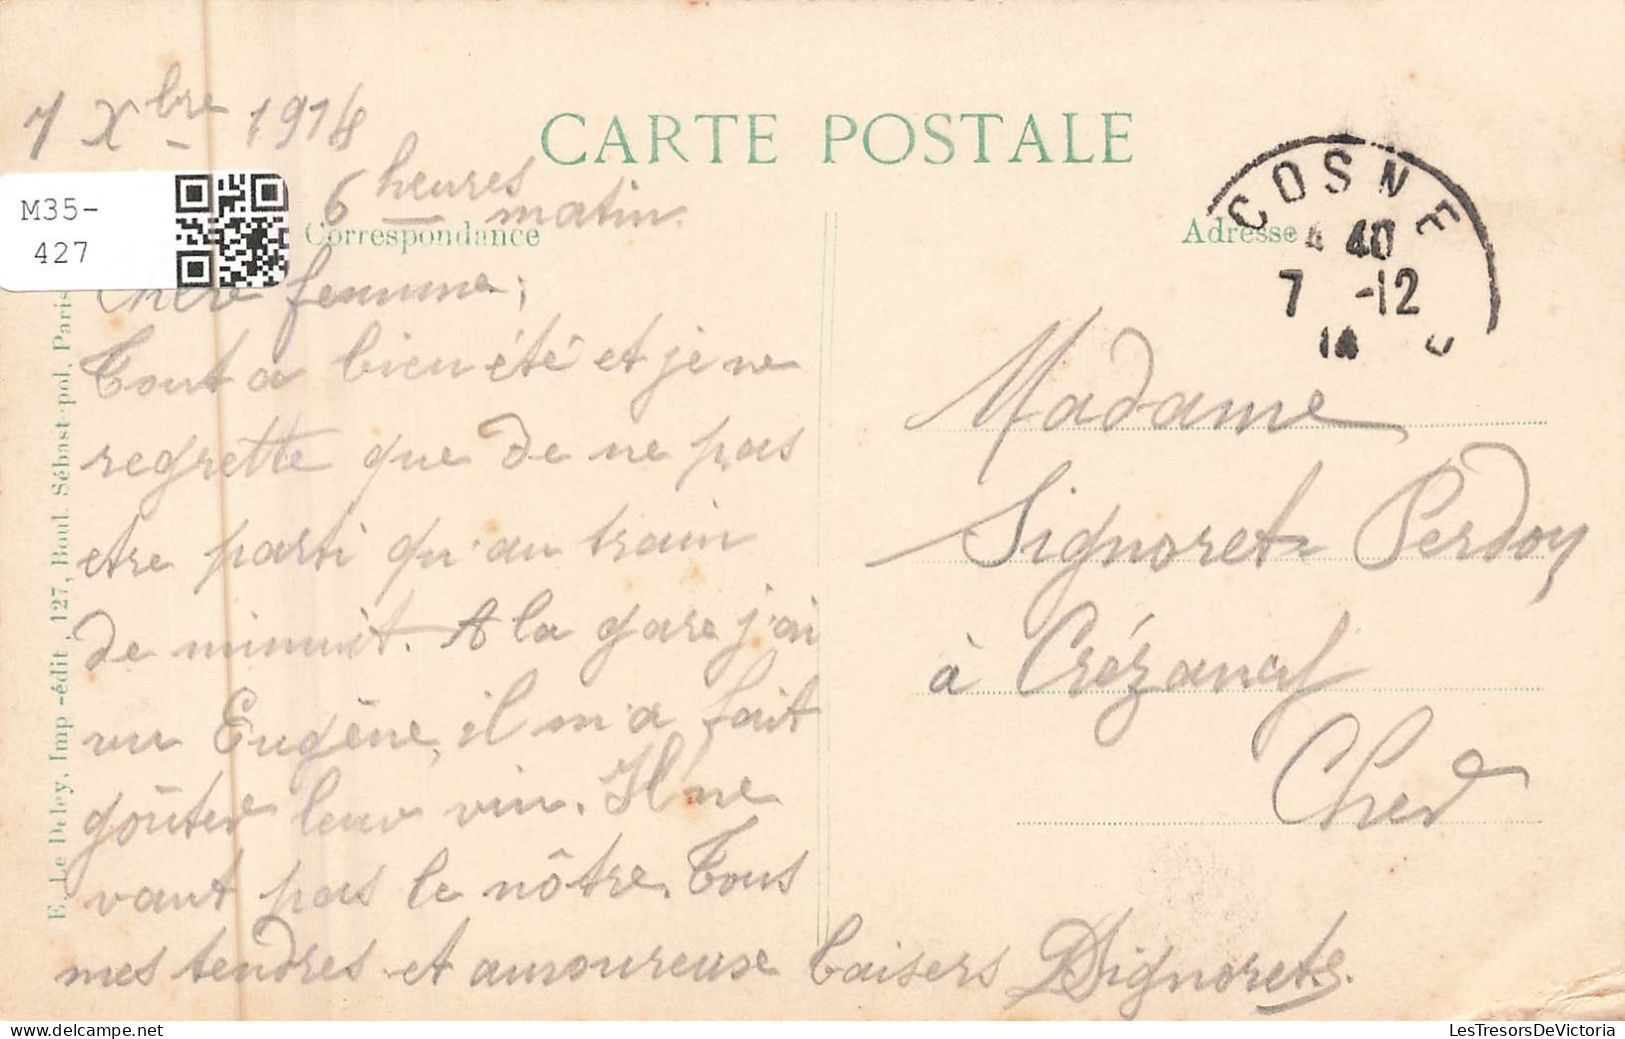 7 Xbre 1914
6 heures
matin.
CARTE POSTALE
Correspondance
Adresse
COSNE
4 40
7 -12
14
M35-
427
Chère femme,
Tout a bien été et je ne
regrette que de ne pas
etre parti qu'au train
de minuit. A la gare j'ai
vu Eugène, il m'a fait
goûter leur vin. Il ne
vaut pas le nôtre. Tous
mes tendres et amoureuse baisers DSignorets.
Madame
Signoret Perdoy
à Crézancy
Cher
E. Le Deley, Imp.-édit, 127, Boul. Sébast-pol, Paris
LesTresorsDeVictoria
delcampe.net